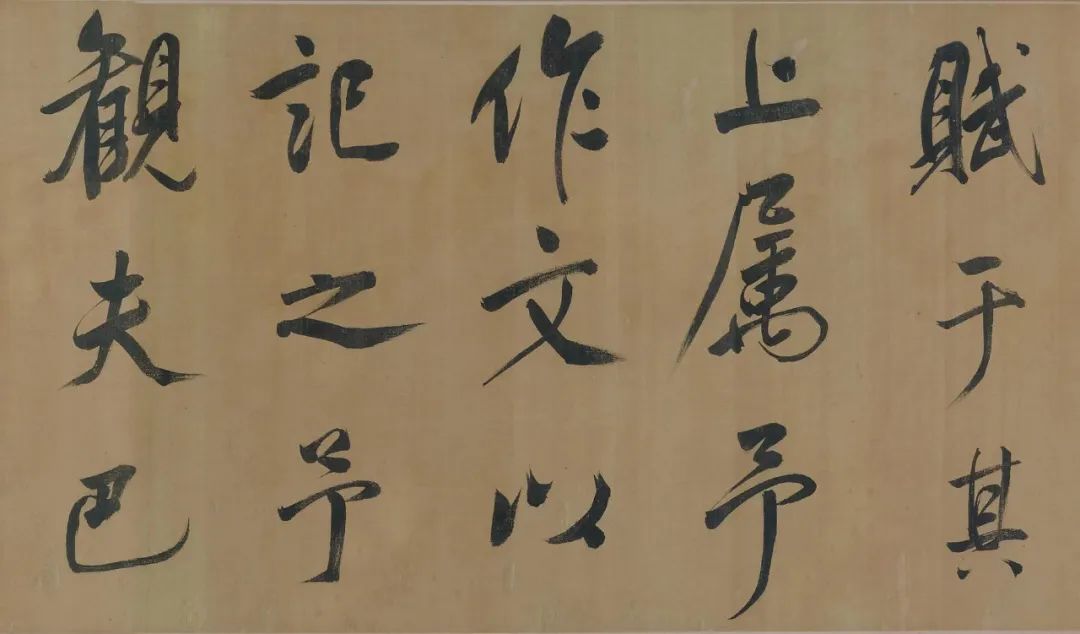 賦于其
上属予
作文以
記之予
觀夫巴